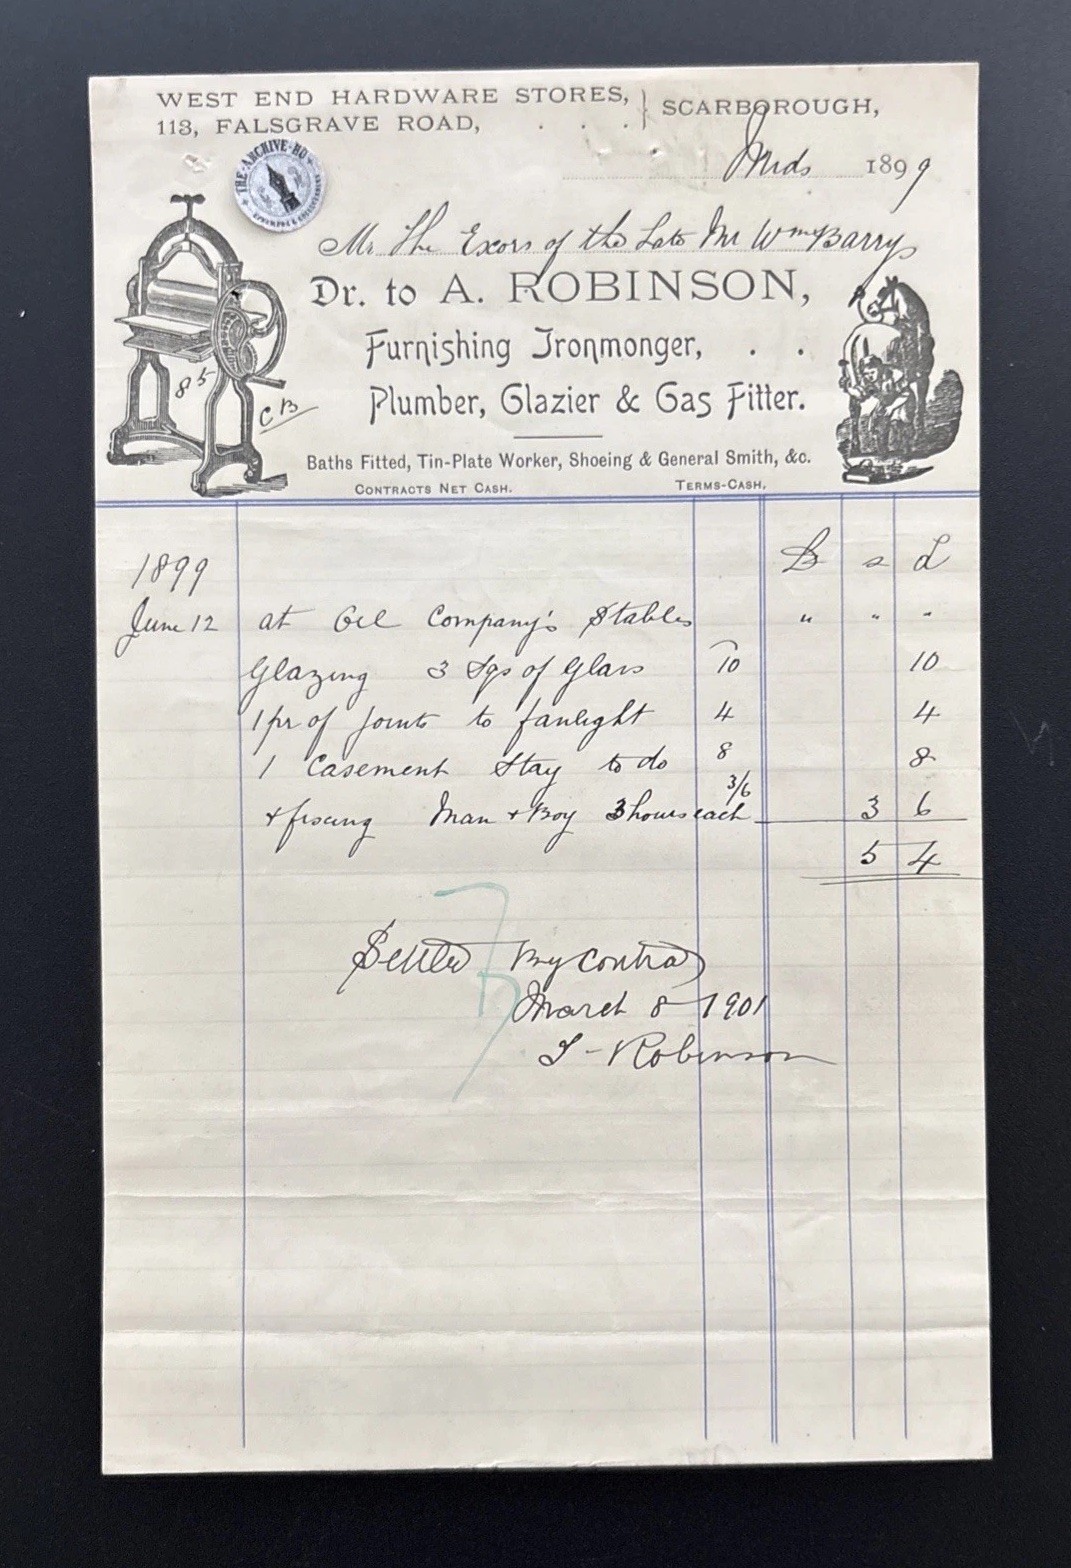 WEST END HARDWARE STORES, } SCARBOROUGH,
113, FALSGRAVE ROAD, . . .
Mids 1899
THE ARCHIVE
Mr The Exors of the Late Mr Wm Barry
Dr. to A. ROBINSON,
Furnishing Ironmonger, . .
Plumber, Glazier & Gas Fitter.
85
CB
Baths Fitted, Tin-Plate Worker, Shoeing & General Smith, &c.
CONTRACTS NET CASH. TERMS-CASH.
1899 £ s d
June 12 at Oil Company's Stables " " "
Glazing 3 Sqs of Glass 10 10
1 pr of Joints to fanlight 4 4
1 Casement Stay to do 8 8
+ fixing Man + Boy 3 hours each 3/6 3 6
5 4
Settled By Contra
March 8 1901
Robinson